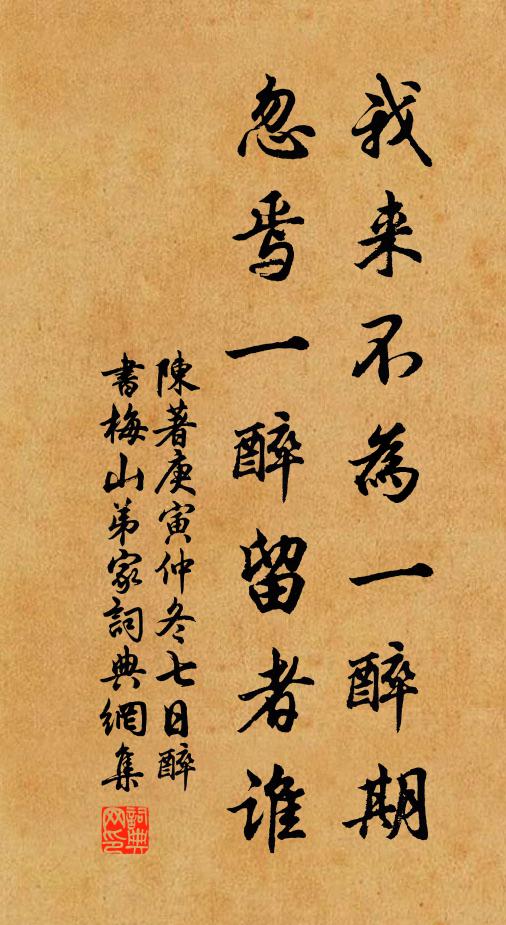 我来不為一醉期
忽焉一醉留者誰
陳著庚寅仲冬七日醉
書梅山弟家詞典網集
詞典
网印